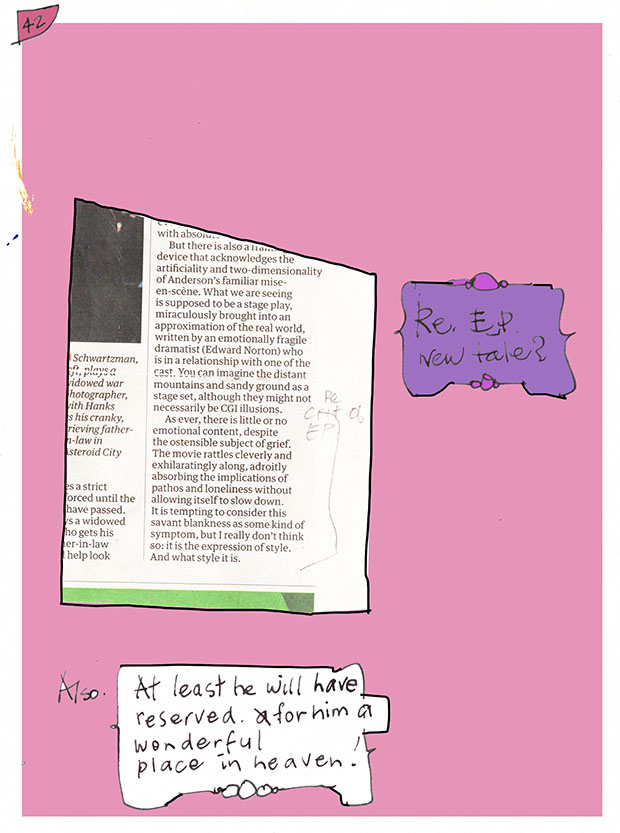 42
with absolu
But there is also a fram
device that acknowledges the
artificiality and two-dimensionality
of Anderson's familiar mise-
en-scène. What we are seeing
is supposed to be a stage play,
miraculously brought into an
approximation of the real world,
written by an emotionally fragile
dramatist (Edward Norton) who
is in a relationship with one of the
cast. You can imagine the distant
mountains and sandy ground as a
stage set, although they might not
necessarily be CGI illusions.
As ever, there is little or no
emotional content, despite
the ostensible subject of grief.
The movie rattles cleverly and
exhilaratingly along, adroitly
absorbing the implications of
pathos and loneliness without
allowing itself to slow down.
It is tempting to consider this
savant blankness as some kind of
symptom, but I really don't think
so: it is the expression of style.
And what style it is.
Schwartzman,
eft, plays a
widowed war
hotographer,
with Hanks
s his cranky,
rieving father-
n-law in
Asteroid City
es a strict
forced until the
have passed.
ys a widowed
ho gets his
er-in-law
l help look
Re
of
EP
Re. E.P.
new tale?
Also.
At least he will have
reserved. for him a
wonderful
place in heaven!